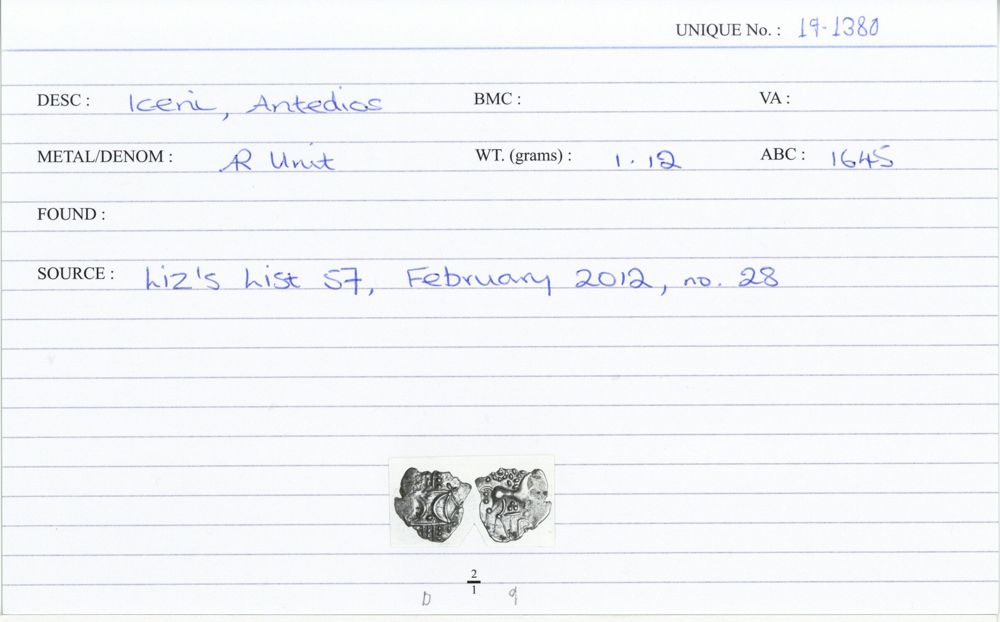 UNIQUE No. : 19-1380
DESC : Iceni, Antedios BMC : VA :
METAL/DENOM : AR Unit WT. (grams) : 1.12 ABC : 1645
FOUND :
SOURCE : Liz's List 57, February 2012, no. 28
2
1
b q